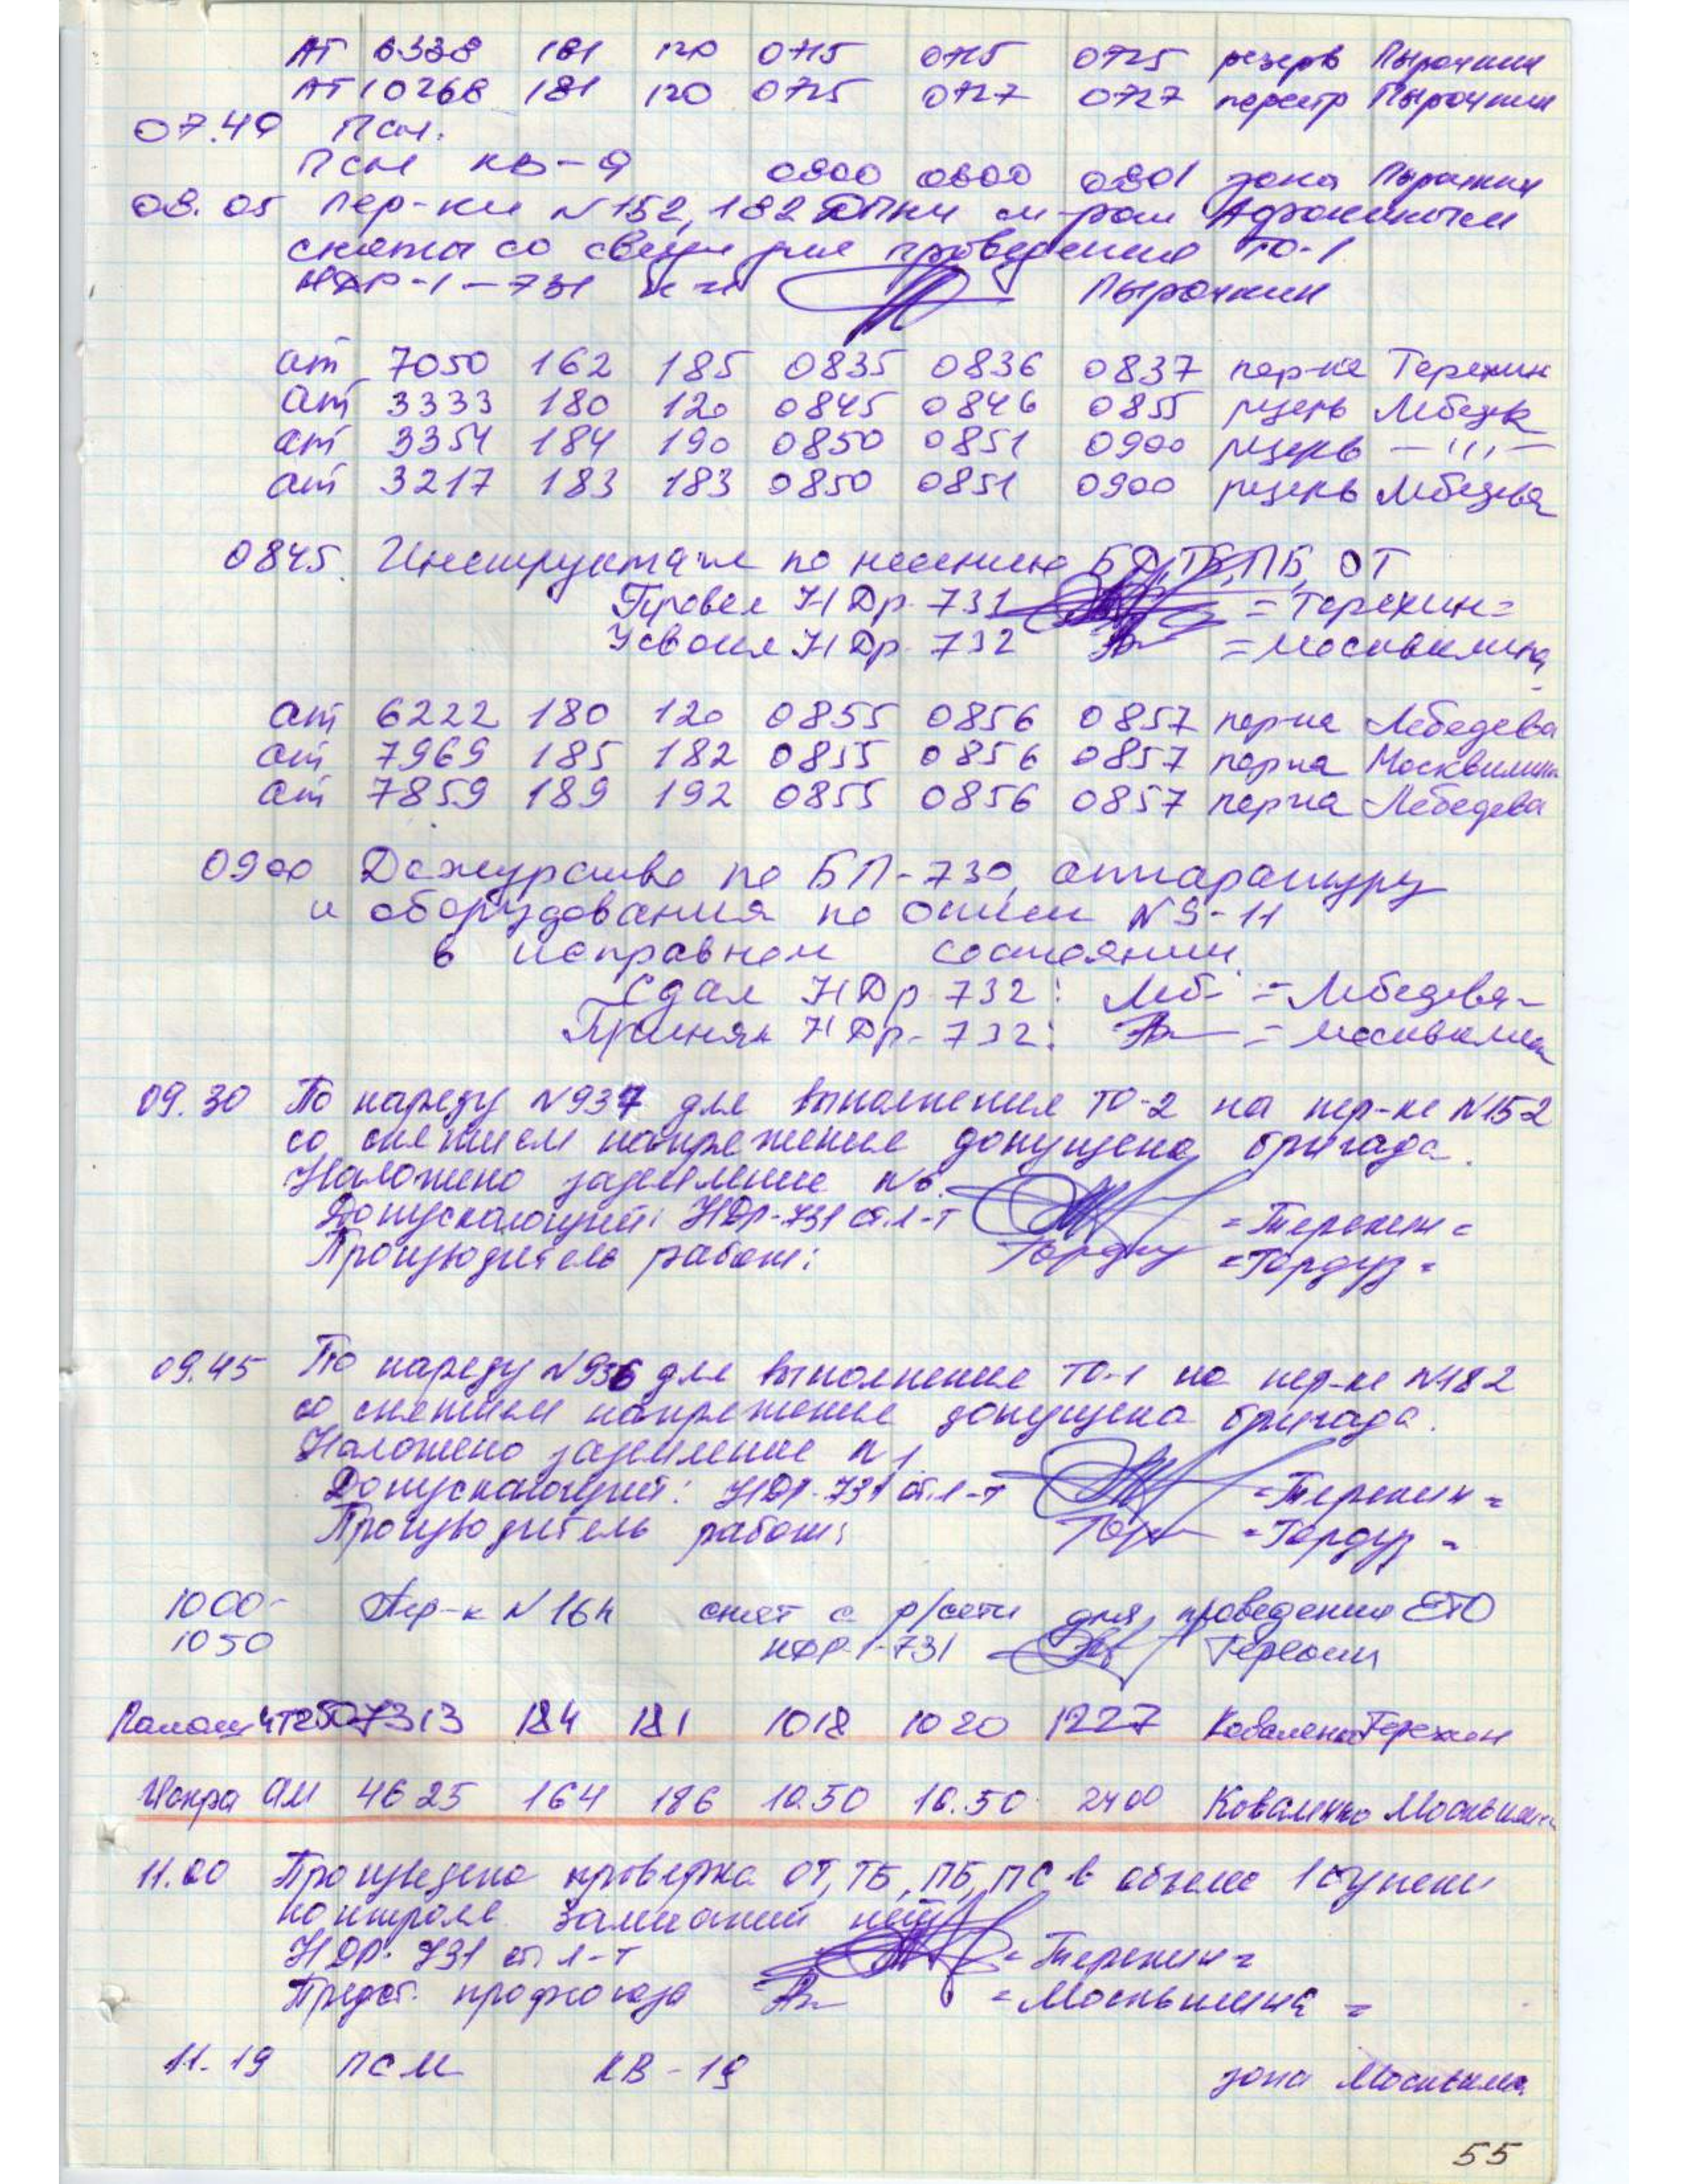 АТ 6338 181 120 0715 0715 0725 резерв Пырочкин
АТ 10268 181 120 0725 0727 0727 перестр Пырочкин
07.49 Псм.
Псм КВ-9 0800 0800 0801 зона Пырочкин
08.05 Пер-ки №152, 182 м-ром
сняты со связи для проведения ТО-1.
НДР-1-731 Пырочкин
ат 7050 162 185 0835 0836 0837 пер-ка Терехин
ат 3333 180 120 0845 0846 0855 резерв Лебедев
ат 3354 184 190 0850 0851 0900 резерв —〃—
ат 3217 183 183 0850 0851 0900 резерв Лебедева
0845. Инструктаж по несению БД, ТБ, ПБ, ОТ
Провел НДр. 731 =Терехин=
Усвоил НДр. 732 =Москвилина
ат 6222 180 120 0855 0856 0857 пер-ка Лебедева
ат 7969 185 182 0855 0856 0857 пер-ка Москвилина
ат 7859 189 192 0855 0856 0857 пер-ка Лебедева
0900 Дежурство по БП-730, аппаратуру
и оборудования по описи №9-11
в исправном состоянии
Сдал НДр 732: Леб. =Лебедева=
Принял НДр-732: =Москвилина
09.30 По наряду №937 для выполнения ТО-2 на пер-ке №152
со снятием напряжения допущена бригада.
Наложено заземление №6.
Допускающий: НДр-731 ст.л-т =Терехин=
Производитель работ: Гордуз =Гордуз=
09.45 По наряду №936 для выполнения ТО-1 на пер-ке №182
со снятием напряжения допущена бригада.
Наложено заземление №1
Допускающий: НДР-731 ст.л-т =Терехин=
Производитель работ: =Гордуз=
1000- Пер-к №164 снят с р/сети для проведения ЕТО
1050 НДР-1-731 Терехин
7313 184 181 1018 1020 1227 Коваленко Терехин
Искра АМ 4625 164 186 10.50 10.50 2400 Коваленко Москвилина
11.00 Произведена проверка ОТ, ТБ, ПБ, ПС в объеме 1 ступени
контроля. Замечаний нет
НДР-731 ст. л-т =Терехин=
Предст. профсоюза =Москвилина=
11.19 ПСМ КВ-19 зона Москвилина
55